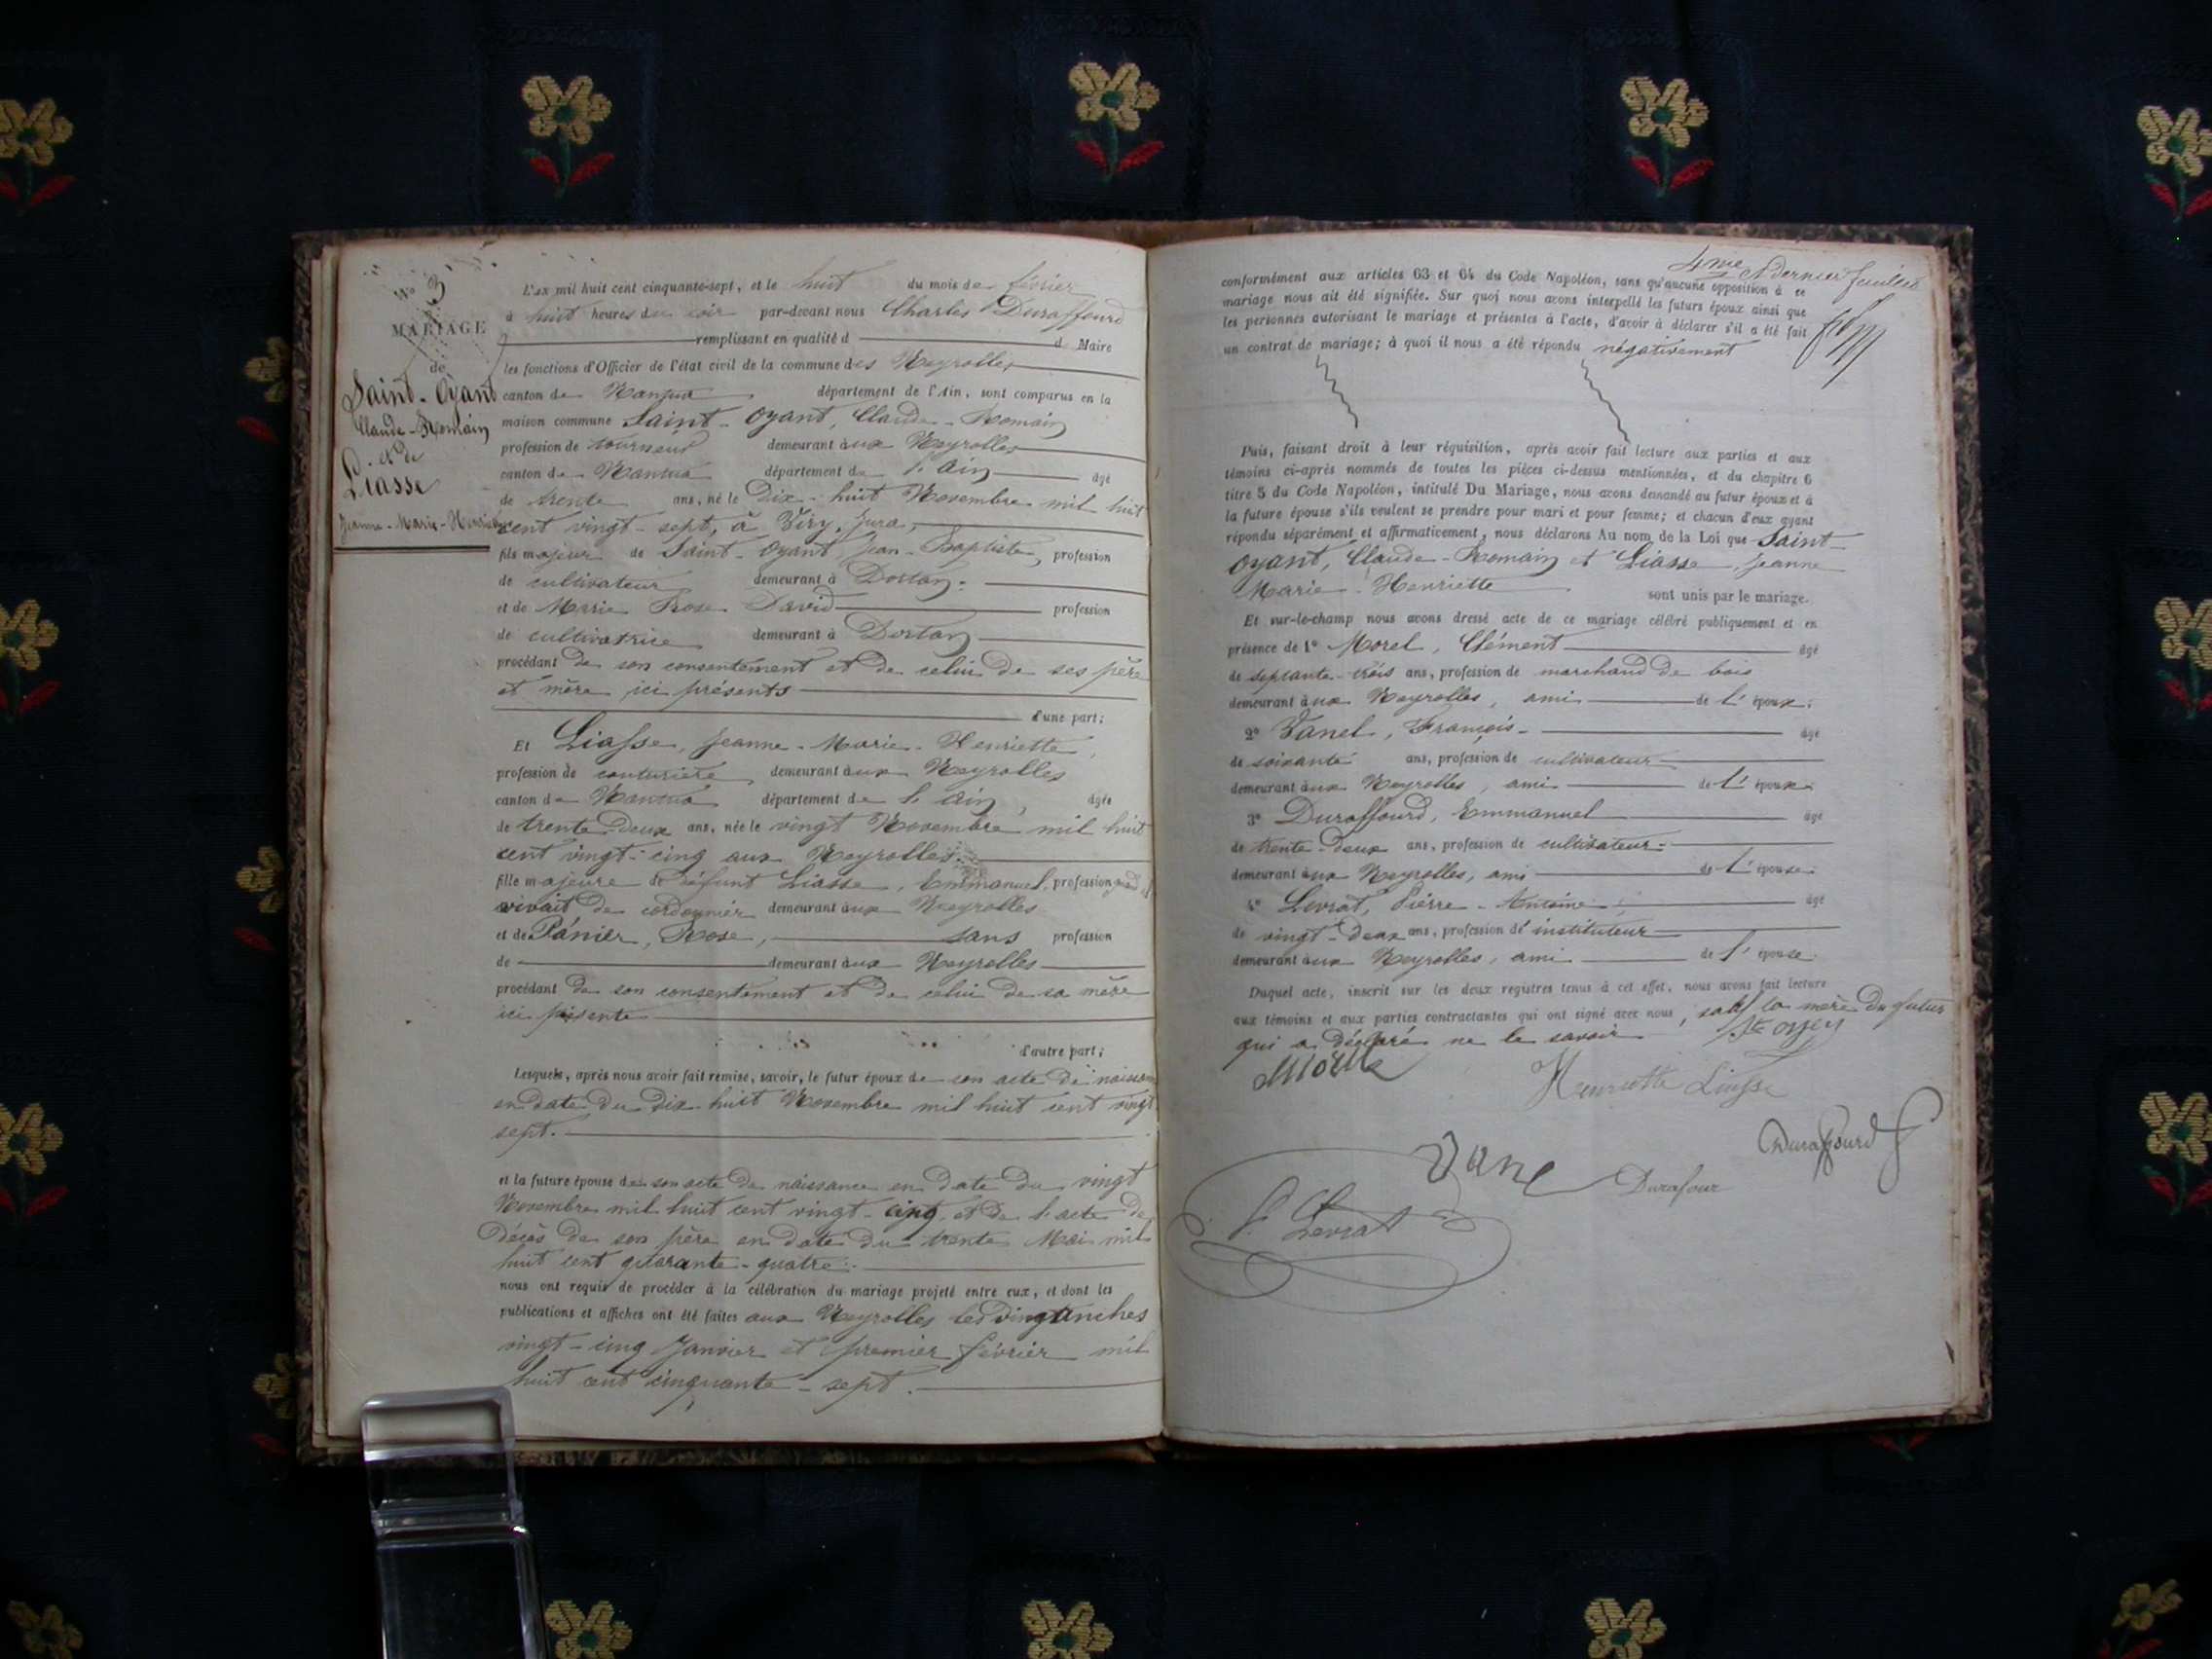 No 3
MARIAGE
de
Saint-Oyant
Claude-Romain
et de
Liasse
Jeanne-Marie-Henriette
L'an mil huit cent cinquante-sept, et le huit du mois de février
à huit heures du soir par-devant nous Charles Duraffourd
remplissant en qualité d d Maire
les fonctions d'Officier de l'état civil de la commune des Neyrolles
canton de Nantua département de l'Ain, sont comparus en la
maison commune Saint-Oyant, Claude-Romain
profession de tourneur demeurant aux Neyrolles
canton de Nantua département de l'Ain âgé
de trente ans, né le Dix-huit Novembre mil huit
cent vingt-sept, à Viry, Jura,
fils majeur de Saint-Oyant, Jean-Baptiste, profession
de cultivateur demeurant à Dortan.
et de Marie Rose David profession
de cultivatrice demeurant à Dortan
procédant de son consentement et de celui de ses père
et mère ici présents
d'une part;
Et Liasse, Jeanne-Marie-Henriette,
profession de couturière demeurant aux Neyrolles
canton de Nantua département de l'Ain, âgée
de trente-deux ans, née le vingt Novembre mil huit
cent vingt-cinq aux Neyrolles.
fille majeure de défunt Liasse, Emmanuel, profession quand il
vivait de cordonnier demeurant aux Neyrolles
et de Panier, Rose, sans profession
de demeurant aux Neyrolles
procédant de son consentement et de celui de sa mère
ici présente
d'autre part;
Lesquels, après nous avoir fait remise, savoir, le futur époux de son acte de naissance
en date du Dix huit Novembre mil huit cent vingt
sept.
et la future épouse de son acte de naissance en date du vingt
Novembre mil huit cent vingt-cinq, et de l'acte de
Décès de son père en date du trente Mai mil
huit cent quarante-quatre.
nous ont requis de procéder à la célébration du mariage projeté entre eux, et dont les
publications et affiches ont été faites aux Neyrolles les dimanches
vingt-cinq Janvier et premier février mil
huit cent cinquante-sept.
4me et dernier feuillet
conformément aux articles 63 et 64 du Code Napoléon, sans qu'aucune opposition à ce
mariage nous ait été signifiée. Sur quoi nous avons interpellé les futurs époux ainsi que
les personnes autorisant le mariage et présentes à l'acte, d'avoir à déclarer s'il a été fait
un contrat de mariage; à quoi il nous a été répondu négativement
Puis, faisant droit à leur réquisition, après avoir fait lecture aux parties et aux
témoins ci-après nommés de toutes les pièces ci-dessus mentionnées, et du chapitre 6
titre 5 du Code Napoléon, intitulé Du Mariage, nous avons demandé au futur époux et à
la future épouse s'ils veulent se prendre pour mari et pour femme; et chacun d'eux ayant
répondu séparément et affirmativement, nous déclarons Au nom de la Loi que Saint-
Oyant, Claude-Romain et Liasse, Jeanne
Marie-Henriette sont unis par le mariage.
Et sur-le-champ nous avons dressé acte de ce mariage célébré publiquement et en
présence de 1° Morel, Clément âgé
de septante-trois ans, profession de marchand de bois
demeurant aux Neyrolles, ami de l'époux;
2° Vanel, François- âgé
de soixante ans, profession de cultivateur
demeurant aux Neyrolles, ami de l'époux
3° Duraffourd, Emmanuel âgé
de trente-deux ans, profession de cultivateur
demeurant aux Neyrolles, ami de l'épouse
4° Levrat, Pierre-Antoine; âgé
de vingt-deux ans, profession d'instituteur
demeurant aux Neyrolles, ami de l'épouse.
Duquel acte, inscrit sur les deux registres tenus à cet effet, nous avons fait lecture
aux témoins et aux parties contractantes qui ont signé avec nous, sauf la mère du futur
qui a déclaré ne le savoir
Henriette Liasse
Duraffourd
Vane
Durafour
Levrat